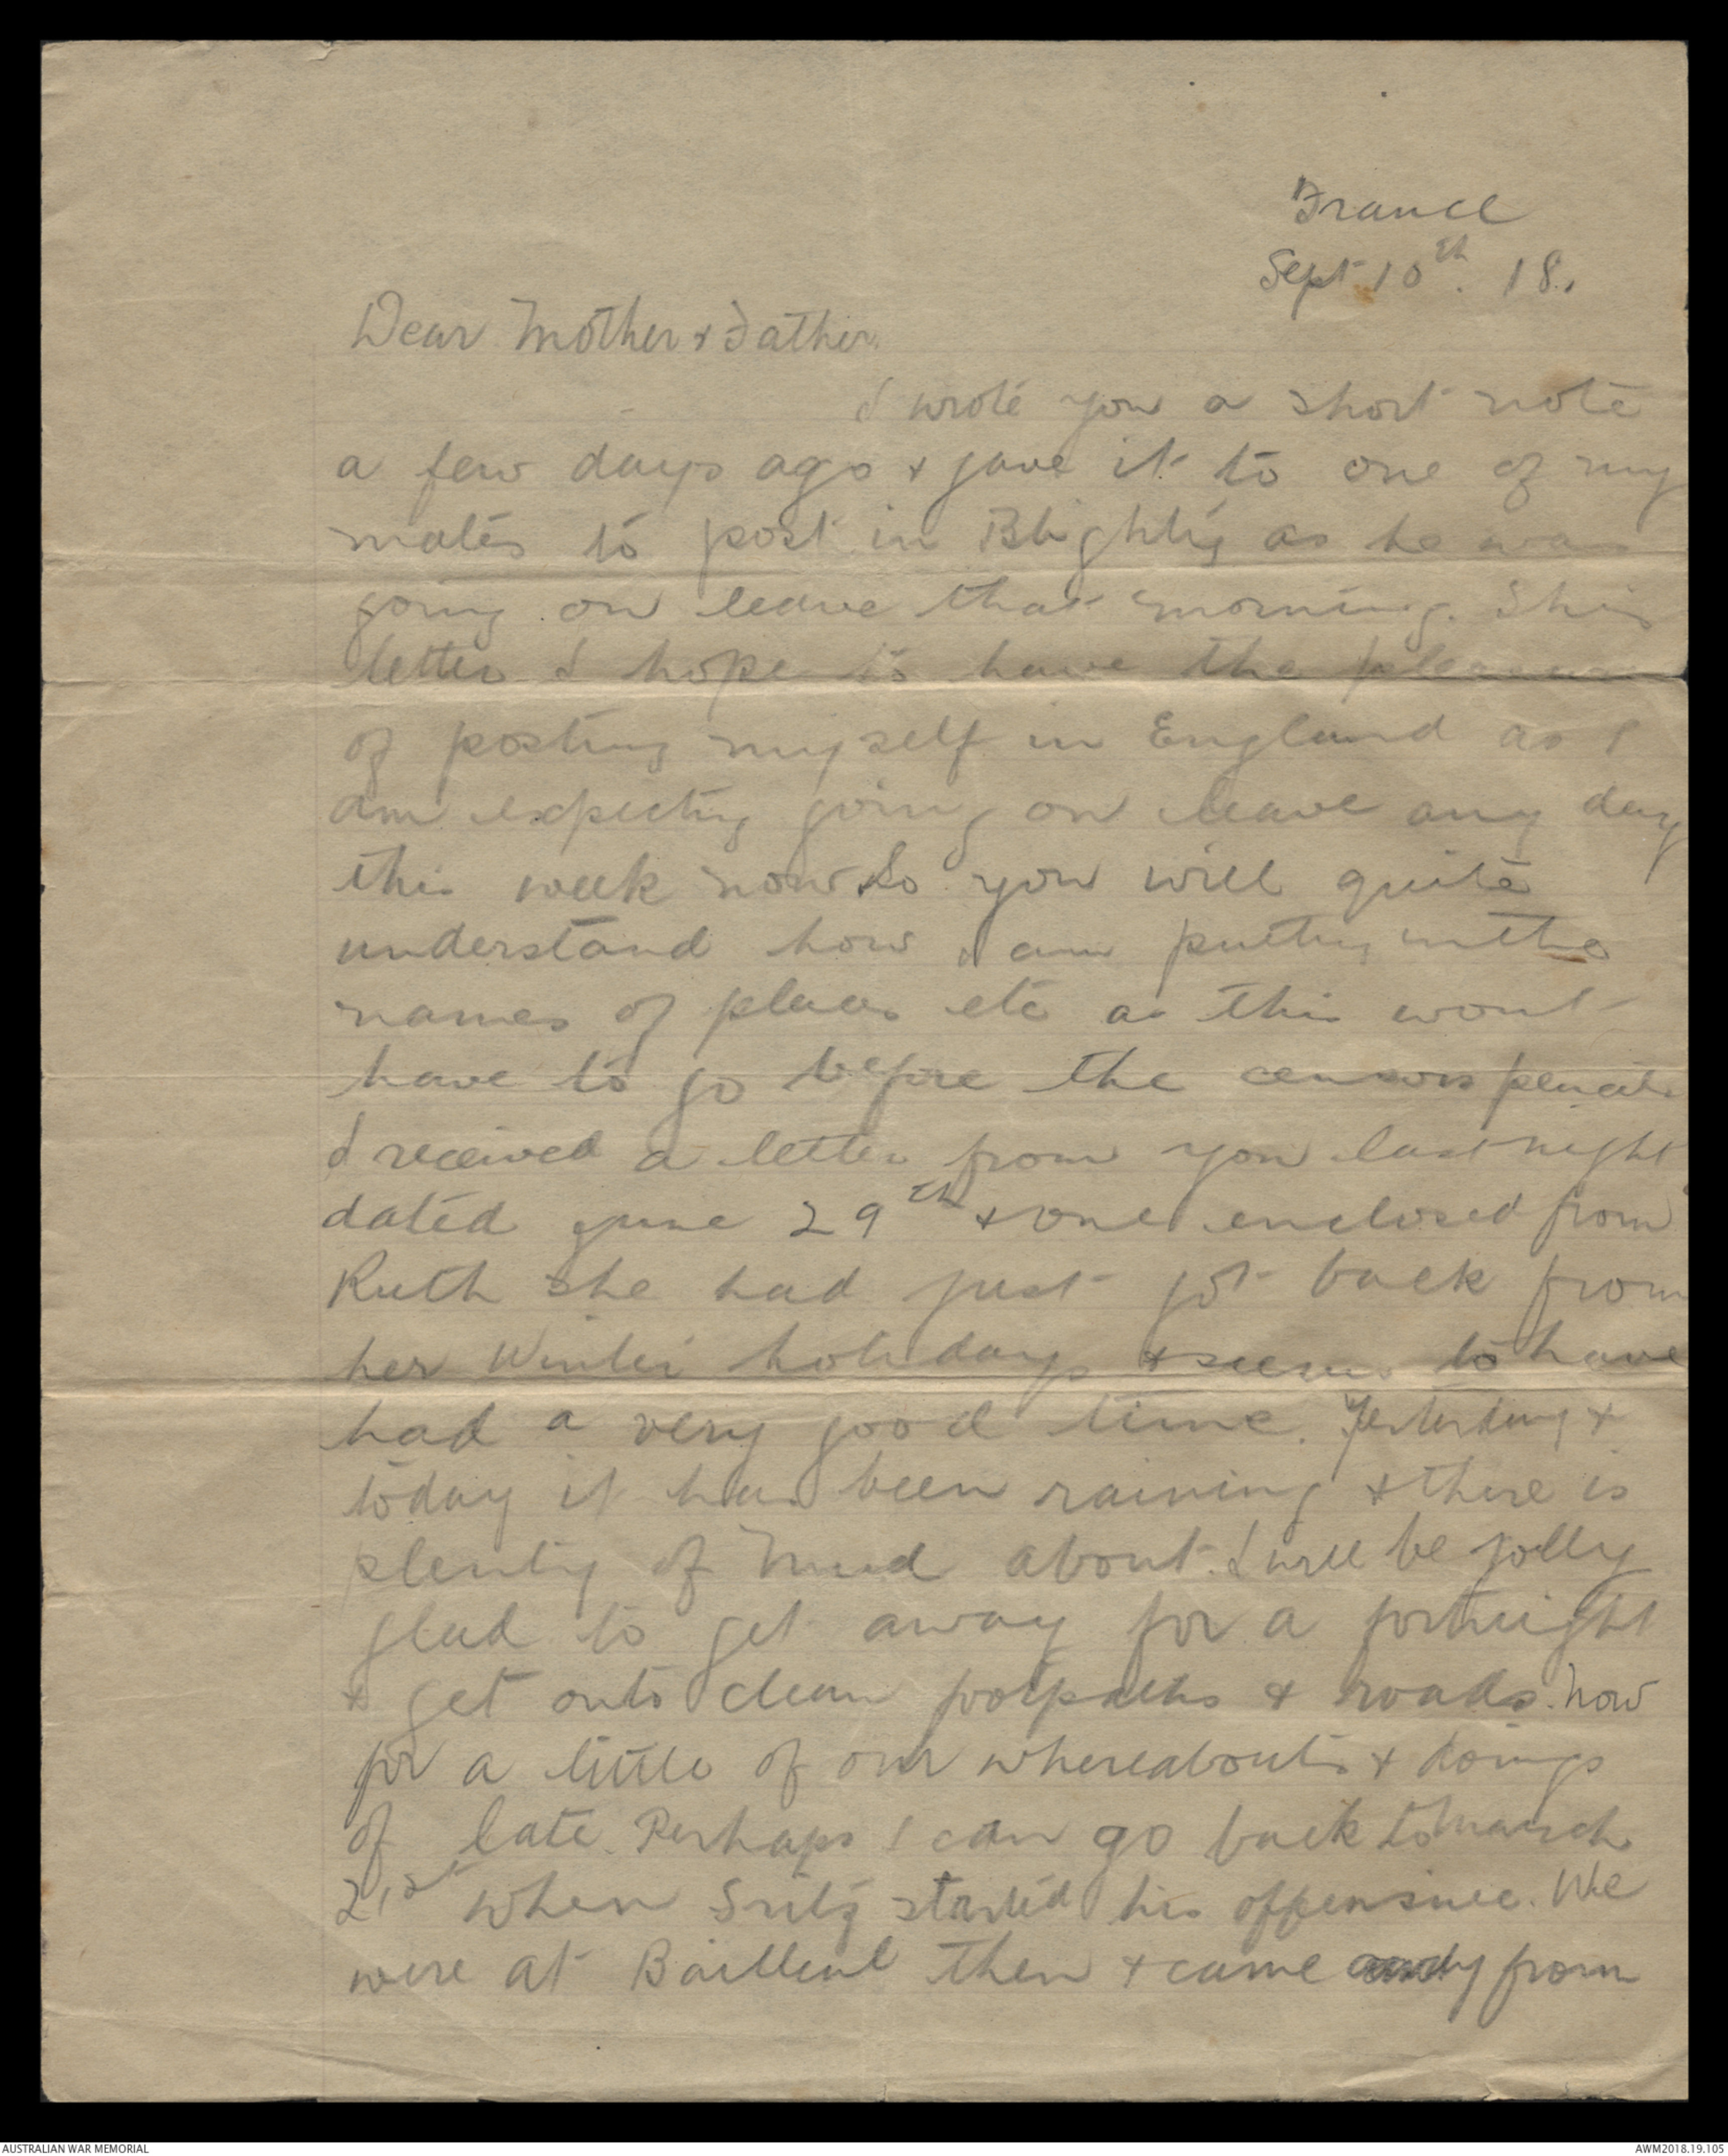 France
Sept 10th. 18.
Dear Mother & Father.
I wrote you a short note
a few days ago & gave it to one of my
mates to post in Blighty as he was
going on leave that morning. This
letter I hope to have the pleasure
of posting myself in England as I
am expecting going on leave any day
this week now. So you will quite
understand how I am putting in the
names of places etc as this wont
have to go before the censors pencil.
I received a letter from you last night
dated June 29th & one enclosed from
Ruth she had just got back from
her Winter holidays & seems to have
had a very good time. Yesterday &
today it has been raining & there is
plenty of mud about. I will be jolly
glad to get away for a fortnight
& get onto clean footpaths & roads. Now
for a little of our whereabouts & doings
of late. Perhaps I can go back to March
21st when Fritz started his offensive. We
were at Bailleul then & came from
AUSTRALIAN WAR MEMORIAL
AWM2018.19.105